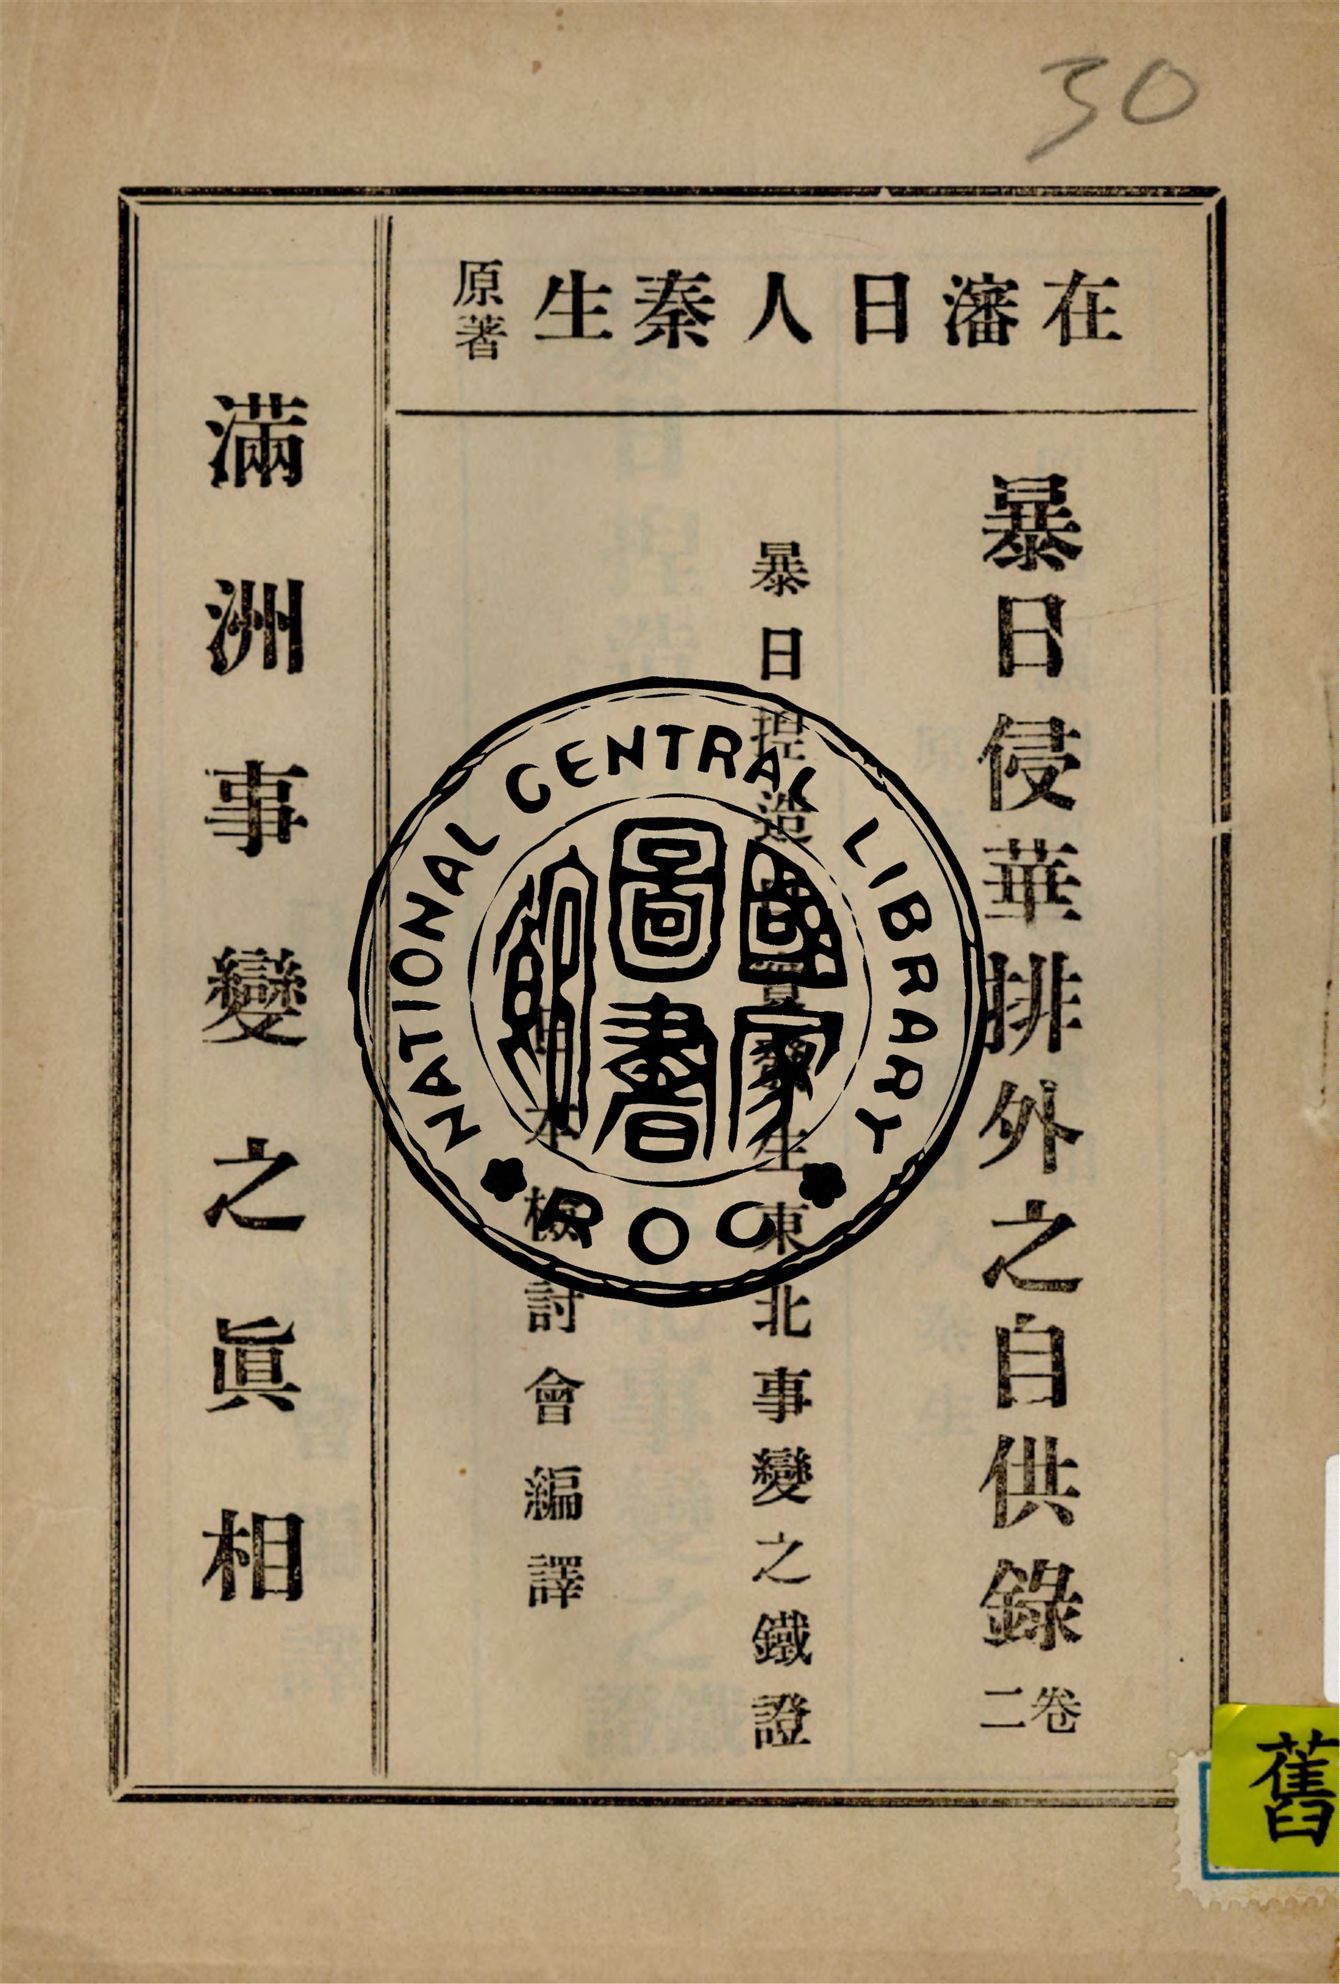 30
在瀋日人秦生原著
暴日侵華排外之自供錄卷二
暴日捏造口實發生東北事變之鐵證
日本檢討會編譯
滿洲事變之眞相
NATIONAL CENTRAL LIBRARY
國家圖書館
ROC
舊